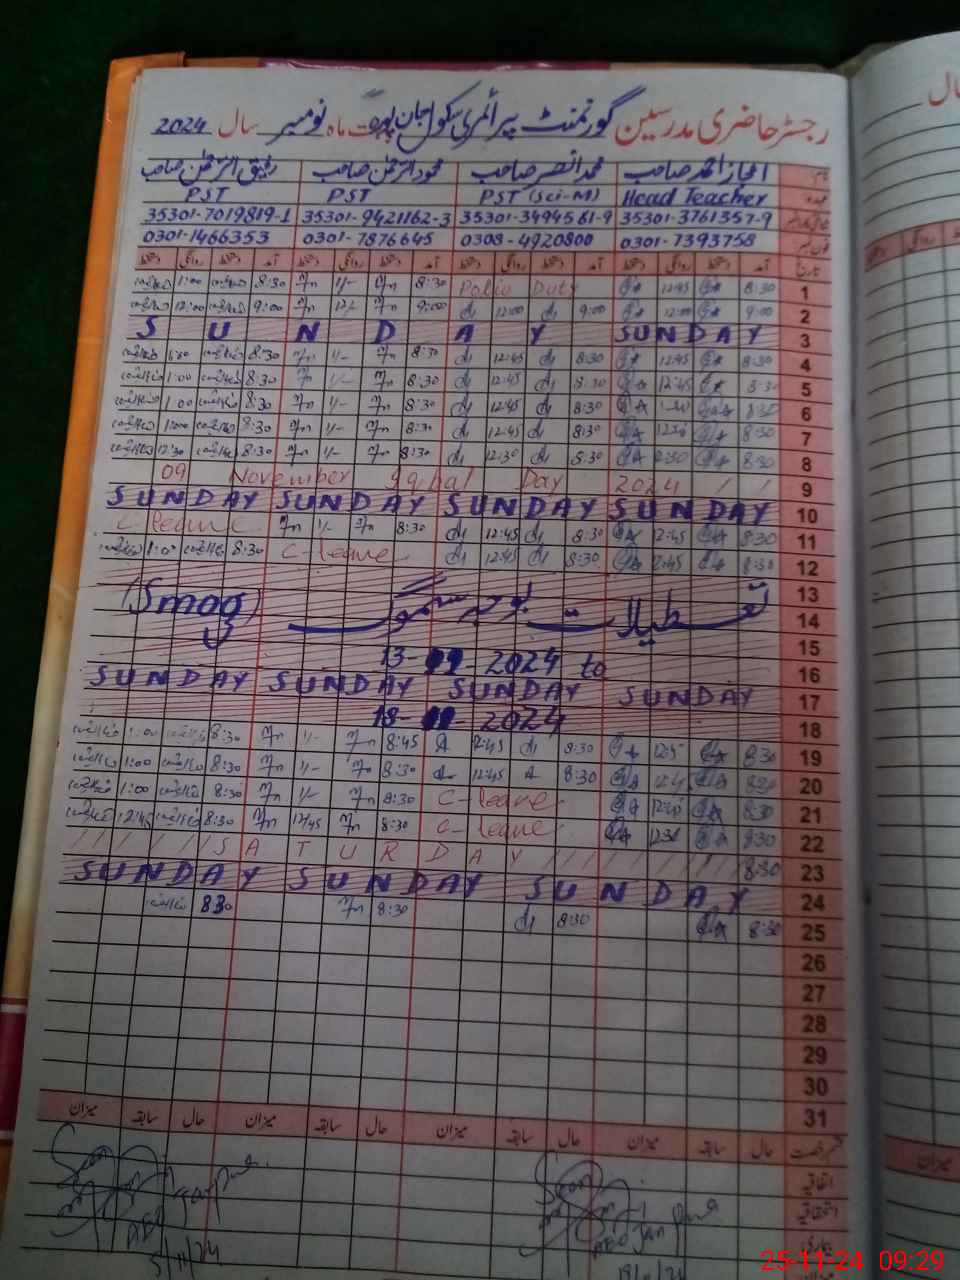 رجسٹر حاضری مدرسین گورنمنٹ پرائمری سکول جان پور بابت ماہ نومبر سال 2024
اعجاز احمد صاحب محمد انصر صاحب محمود الرحمٰن صاحب رفیق الرحمٰن صاحب
عہدہ Head Teacher PST (Sci-M) PST PST
35301-3761357-9 35301-3494561-9 35301-9421162-3 35301-7019819-1
فون نمبر 0301-7393758 0308-4920800 0301-7876645 0301-1466353
تاریخ آمد دستخط روانگی دستخط آمد دستخط روانگی دستخط آمد دستخط روانگی دستخط آمد دستخط روانگی دستخط
1 8:30 12:45 Polio Duty 8:30 1/- 8:30 1:00
2 9:00 12:00 9:00 12:00 9:00 12/- 9:00 12:00
3 SUNDAY SUNDAY
4 8:30 12:45 8:30 12:45 8:30 1/- 8:30
5 8:30 12:45 8:30 12:45 8:30 1/- 8:30 1:00
6 8:30 8:30 12:45 8:30 1/- 8:30 1:00
7 8:30 8:30 12:45 8:30 1/- 8:30 1:00
8 8:30 12:30 8:30 12:30 8:30 1/- 8:30 12:30
9 09 November Iqbal Day 2024
10 SUNDAY SUNDAY SUNDAY SUNDAY
11 8:30 12:45 8:30 12:45 8:30 1/- C-leave
12 8:30 12:45 8:30 12:45 C-leave 8:30 1:00
13
14 تعطیلات بوجہ سموگ (Smog)
15
16 13-11-2024 to
17 SUNDAY SUNDAY SUNDAY SUNDAY
18 18-11-2024
19 8:30 12:45 8:30 12:45 8:45 1/- 8:30 1:00
20 8:30 12:45 8:30 12:45 8:30 1/- 8:30 1:00
21 8:30 C-leave 8:30 1/- 8:30 1:00
22 8:30 12:30 C-leave 8:30 12/45 8:30 12:45
23 8:30 SATURDAY
24 SUNDAY SUNDAY SUNDAY
25 8:30 8:30 8:30 830
26
27
28
29
30
31
حال سابقہ میزان حال سابقہ میزان حال سابقہ میزان حال سابقہ میزان
اتفاقیہ
استحقاقیہ
بیماری
AEO Jan pur
5/11/24
AEO Jan pur
میزان
25-11-24 09:29